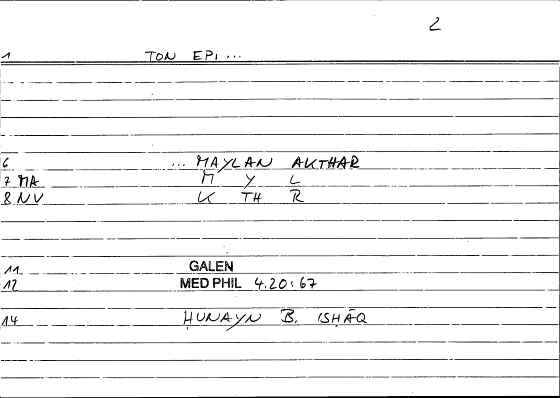 2
1 TON EPI...
6 ... MAYLAN AKTHAR
7 MA M Y L
8 NV K TH R
11 GALEN
12 MED PHIL 4.20:67
14 ḤUNAYN B. ISḤĀQ